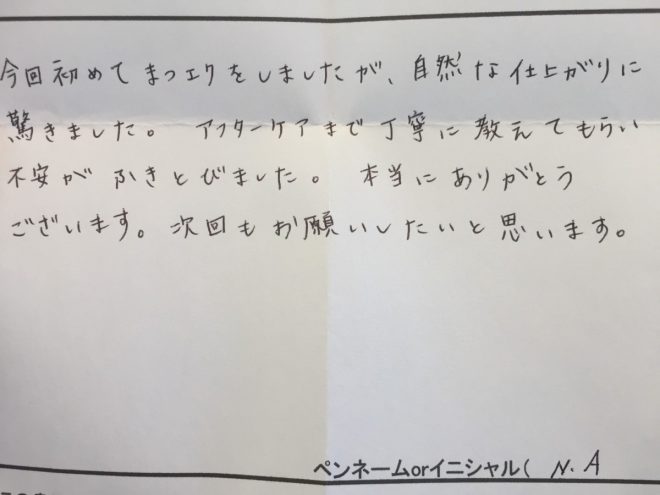 今回初めてまつエクをしましたが、自然な仕上がりに
驚きました。 アフターケアまで丁寧に教えてもらい
不安がふきとびました。 本当にありがとう
ございます。次回もお願いしたいと思います。
ペンネームorイニシャル( N.A